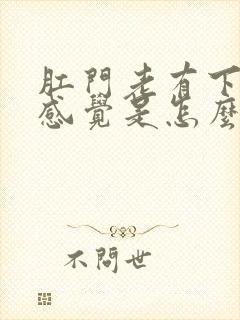 肛門老有下
感覺是怎麼
不問世